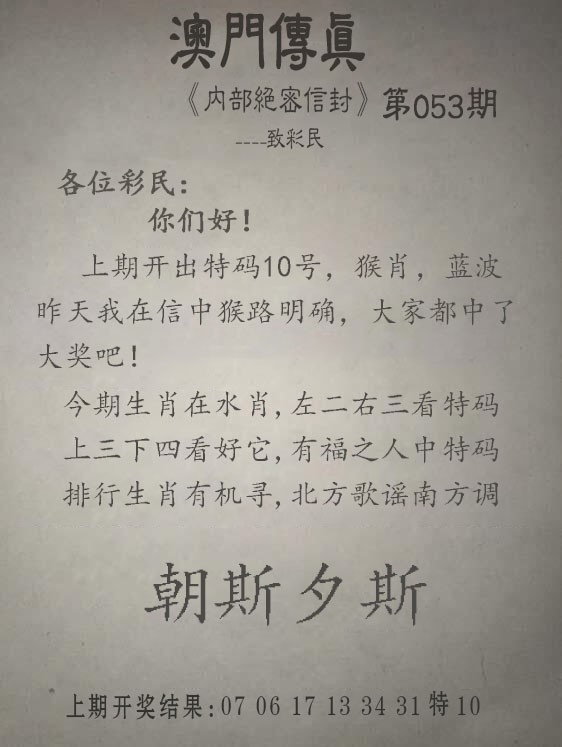 澳門傳眞
《内部絕密信封》第053期
----致彩民
各位彩民：
你们好！
上期开出特码10号，猴肖，蓝波
昨天我在信中猴路明确，大家都中了
大奖吧！
今期生肖在水肖,左二右三看特码
上三下四看好它,有福之人中特码
排行生肖有机寻,北方歌谣南方调
朝斯夕斯
上期开奖结果:07 06 17 13 34 31 特 10